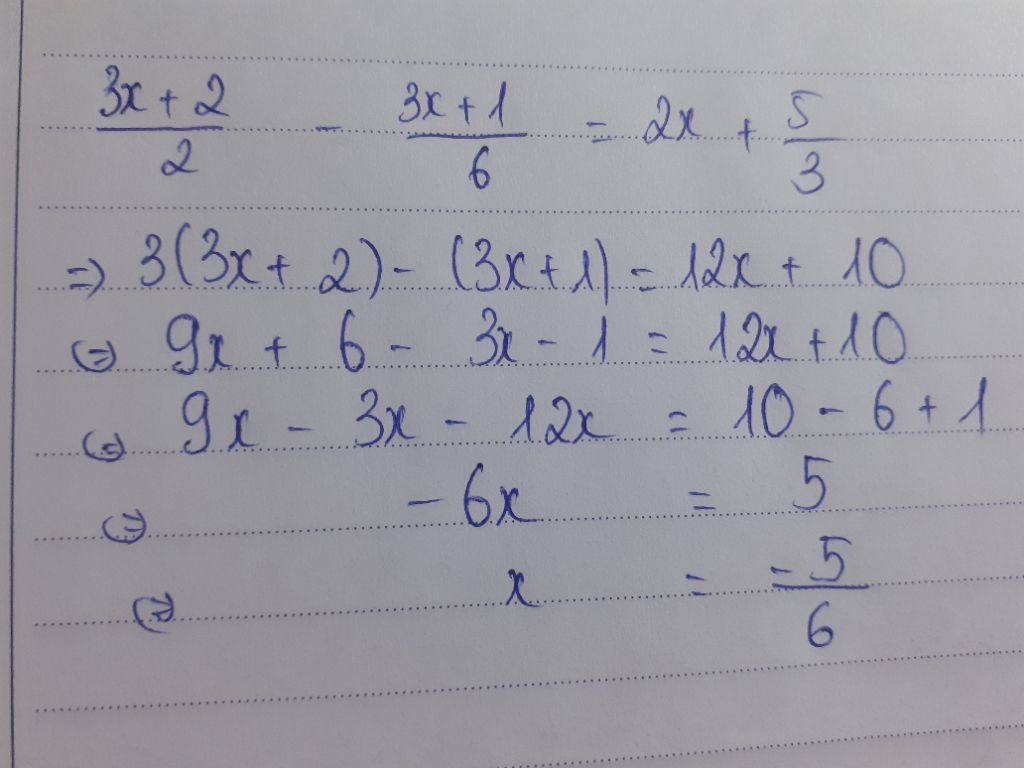 (3x + 2)/2 - (3x + 1)/6 = 2x + 5/3
=> 3(3x + 2) - (3x + 1) = 12x + 10
<=> 9x + 6 - 3x - 1 = 12x + 10
<=> 9x - 3x - 12x = 10 - 6 + 1
<=> -6x = 5
<=> x = -5/6